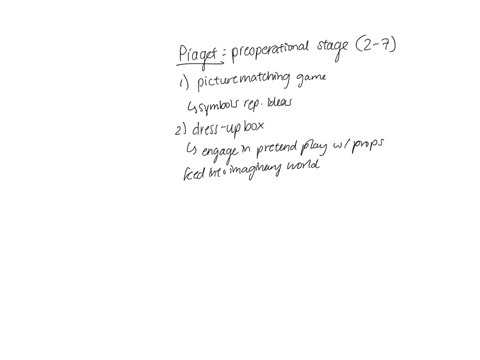 Piaget: preoperational stage (2-7)
1) picture matching game
↳ symbols rep. ideas
2) dress-up box
↳ engage in pretend play w/ props
feed into imaginary world